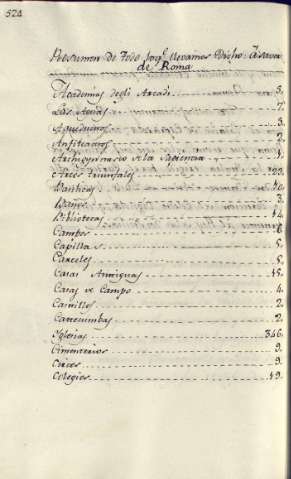 524
Resumen de Todo loq.e llevamos Dicho: Acerca
de Roma
Academias degli Arcadi 3.
Las Aguas 7.
Aqueductos 3.
Anfiteatros 2.
Archigymnasio de la Sapiencia 1.
Arcos triunfales
Basilicas
Baños 3.
Bibliotecas 14.
Campos 6.
Capillas 5.
Carceles 5.
Casas Antiguas 15.
Casas de Campo 4.
Castillos 2.
Catacumbas 2.
Iglesias 346.
Cimenterios 9.
Circos 9.
Colegios 19.